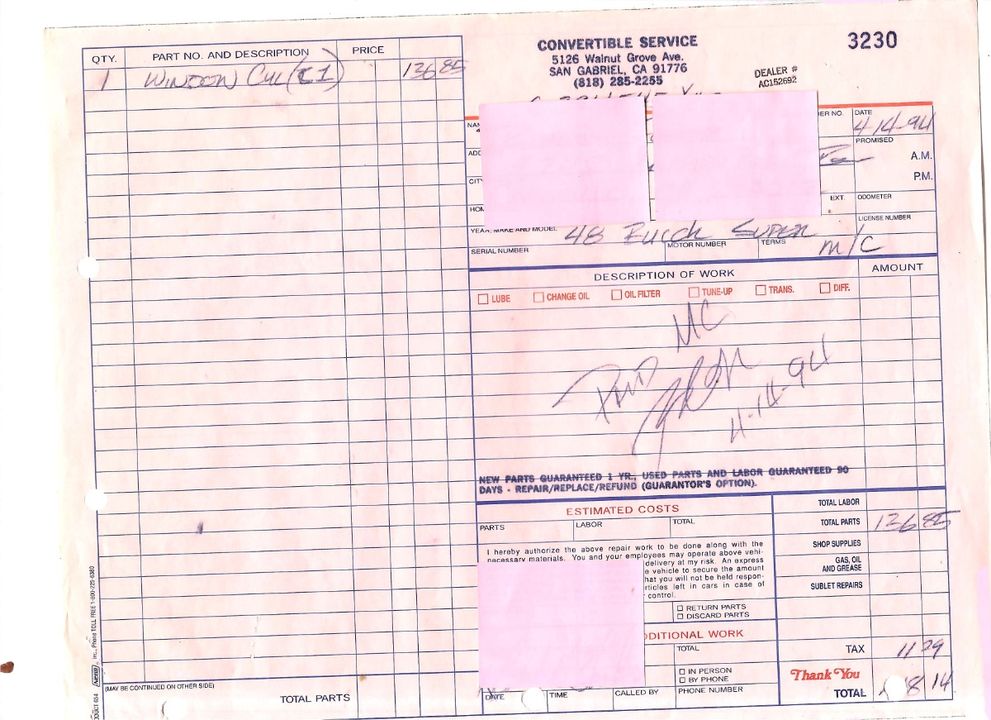 QTY. PART NO. AND DESCRIPTION PRICE
1 WINDOW CYL (C1) 136 85
CONVERTIBLE SERVICE
5126 Walnut Grove Ave.
SAN GABRIEL, CA 91776
(818) 285-2255
DEALER #
AC152692
3230
DATE
4-14-94
PROMISED
A.M.
P.M.
EXT. ODOMETER
LICENSE NUMBER
YEAR, MAKE AND MODEL 48 Buick Super
SERIAL NUMBER MOTOR NUMBER TERMS M/C
DESCRIPTION OF WORK AMOUNT
LUBE CHANGE OIL OIL FILTER TUNE-UP TRANS. DIFF.
MC
PAID
4-14-94
NEW PARTS GUARANTEED 1 YR., USED PARTS AND LABOR GUARANTEED 90
DAYS - REPAIR/REPLACE/REFUND (GUARANTOR'S OPTION).
ESTIMATED COSTS
PARTS LABOR TOTAL
I hereby authorize the above repair work to be done along with the
necessary materials. You and your employees may operate above vehi-
delivery at my risk. An express
vehicle to secure the amount
hat you will not be held respon-
rticles left in cars in case of
control.
RETURN PARTS
DISCARD PARTS
DDITIONAL WORK
TOTAL
IN PERSON
BY PHONE
DATE TIME CALLED BY PHONE NUMBER
TOTAL LABOR
TOTAL PARTS 136 85
SHOP SUPPLIES
GAS, OIL
AND GREASE
SUBLET REPAIRS
TAX 11 29
Thank You
TOTAL 8 14
(MAY BE CONTINUED ON OTHER SIDE)
TOTAL PARTS
Phone TOLL FREE 1-800-225-6380